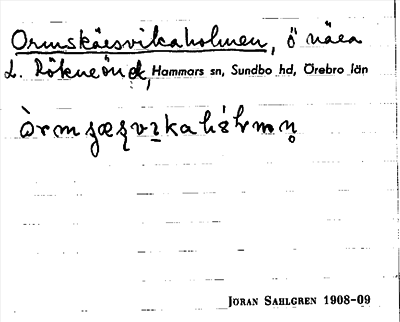 Ormskäesvikaholmen, ö nära
L. Rökneön d, Hammars sn, Sundbo hd, Örebro län
JORAN SAHLGREN 1908-09